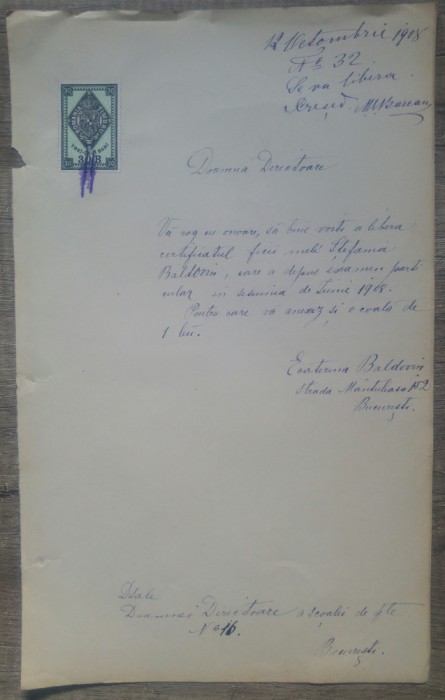 12 Octombrie 1908
No 32
Se va libera
30 30
30 B
Doamnă Directoare
Vă rog cu onoare, să bine voiți a libera
certificatul ficei mele Ștefania
Baldovin, care a depus examen parti
cular în sesiunea de Iunie 1908.
Pentru care vă anexez și o coală de
1 leu.
Ecaterina Baldovin
Strada Mântuleasa No 2
București.
D-sale
Doamnei Directoare a școalei de fete
No 16.
București.